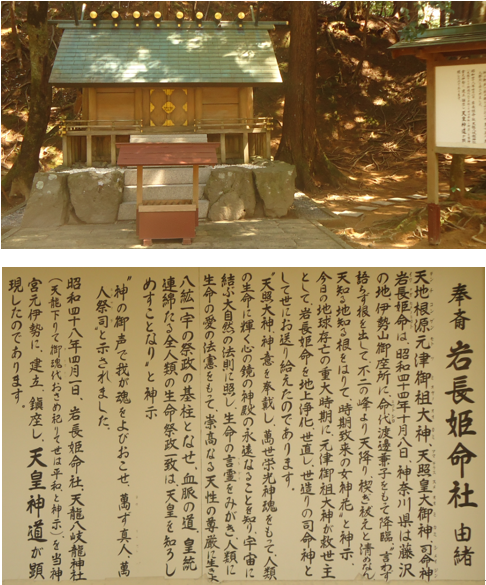 奉斎 岩長姫命社 由緒
天地根源元津御祖大神、天照皇大御神、司命神
岩長姫命は、昭和四十四年十月八日、神奈川県は藤沢
の地、伊勢山御座所に命代渡邊董子をもて降臨、言わず
語らず根を出して、不二の峰より天降り楔ぎ祓えと清めなん
天知る地知る根をはりて、時期致来の女神花〃と神示
今日の地球存亡の重大時期に、元津御祖大神が救世主
として、岩長姫命を地上浄化、世直し、世造りの司命神と
して世にお送り給えたのであります。
〝天照大神、神意を奉載し、萬世栄光神魂をもって、人類
の生命に輝く心の鏡の神殿の永遠なることを知り、宇宙に
結ぶ大自然の法則に照し、生命の言霊をみがき人類に
生命の愛の法憲をもって、崇高なる天性の尊厳に生きよ
八紘一宇の祭政の基柱となせ、血脈の道、皇統
連綿たる全人類の生命祭政一致は、天皇を知ろし
めすことなり〟と神示
〝神の御声で我が魂をよびおこせ、萬す真人、萬
人祭司〟と示されました。
昭和四十八年四月一日、岩長姫命社、天龍八岐龍神社
(天龍下りて御魂代おさめ祀りて世は平和と神示)を当神
宮元伊勢に、建立、鎮座し、天皇神道が顕
現したのであります。